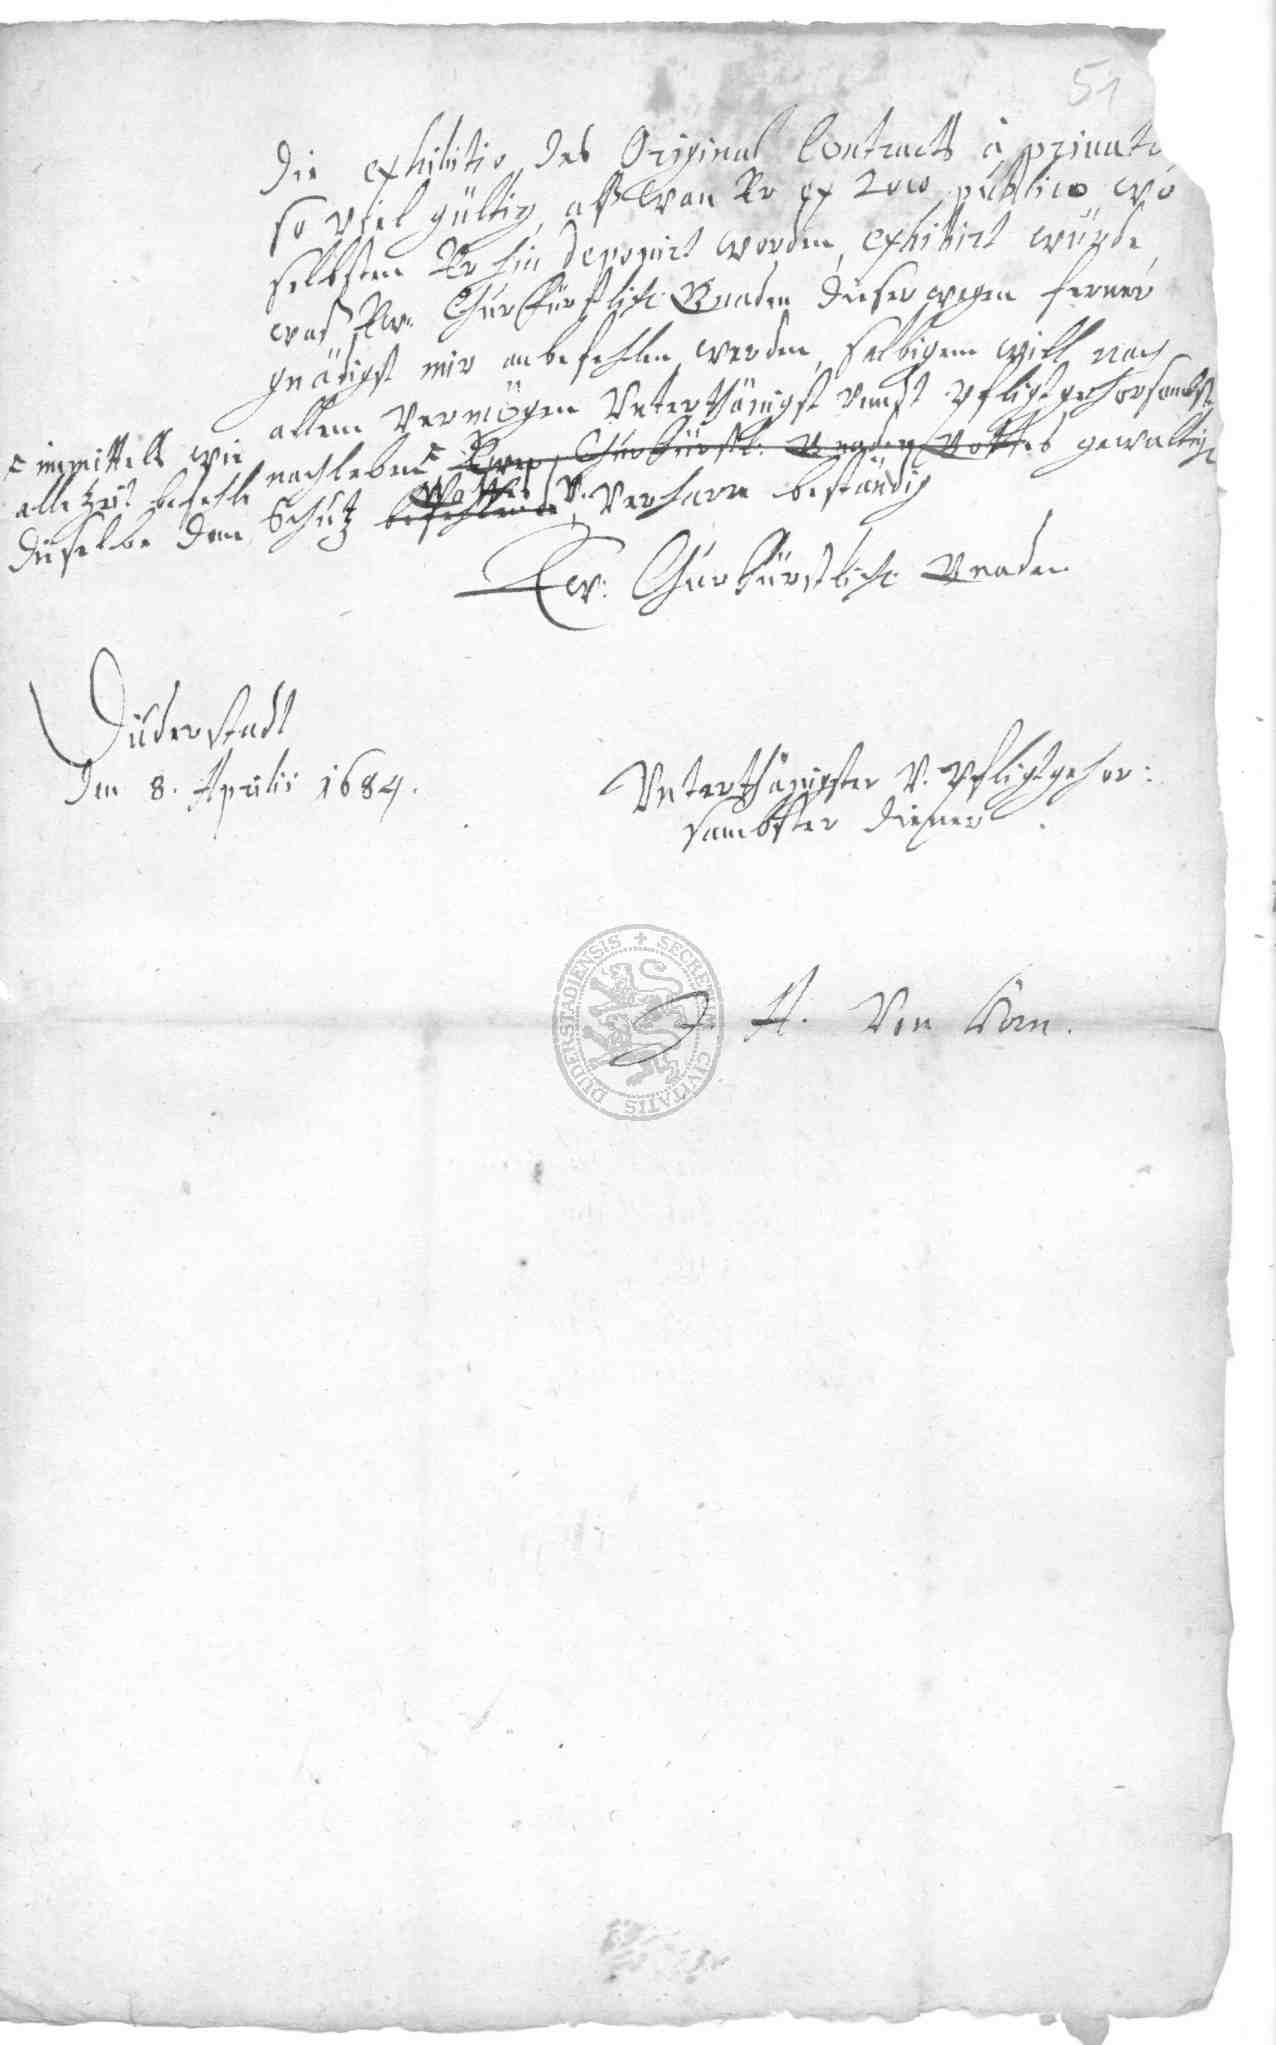 51
die exhibitio des Original Contracts à privato
so viel gültig, alß wan Er ex loco publico wo
selbsten Er hin deponirt worden, exhibirt würde,
was Ew: Churfürstliche Gnaden dieser wegen ferner
gnädigst mir anbefehlen werden, selbigem will nach
allem Vermögen Unterthänigst pflichtgehorsambst
nachleben, Ewer Churfürstl: Gnaden Gottes gewaltige
immittelß wie
alle Zeit befehle
dieselbe dem Schutz befehlende, Gottes v. verharre beständig
Ew: Churfürstliche Gnaden
Duderstadt
den 8. Aprilis 1684.
Unterthänigster v. pflichtgehor:
sambster diener
J. A. Von Horn.
SECRETUM CIVITATIS DUDERSTADIENSIS